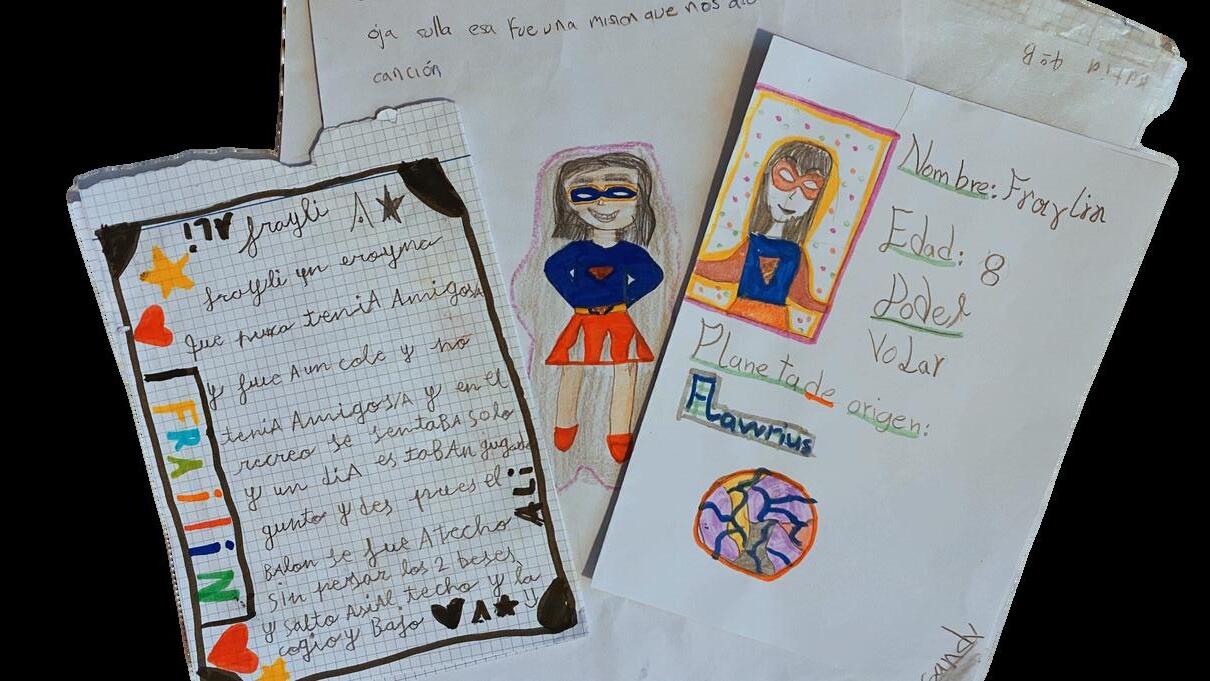 oja sulla esa fue una mision que nos dio
canción
ALi
frayli A
frayli un eroyna
que nunca teniA AmigosA
y fue A un cole y no
teniA AmigosA y en el
recreo se sentaBA solo
y un diA estaBAn jugando
gunto y des pues el
Balon se fue A techo
sin pensar los 2 beses
y salto AsiAl techo y la
cogio y Bajo A y
FRAiliN
ALi
Nombre: Fraylin
Edad: 8
Poder
Volar
Planeta de origen:
Flawrius